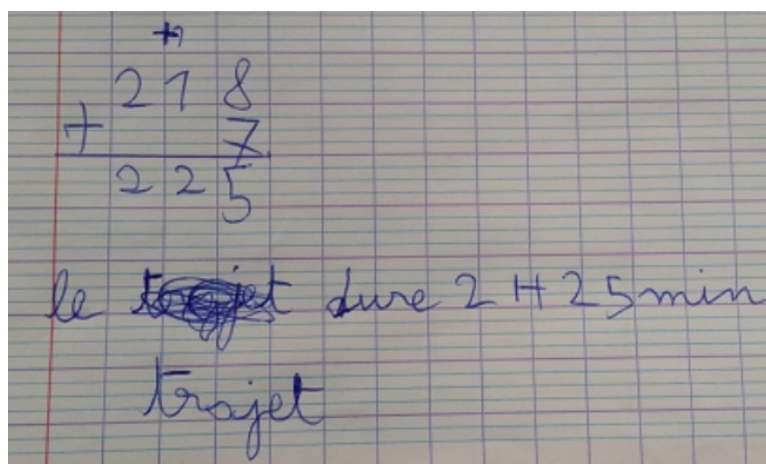 +1
218
+ 7
225
le dure 2 H 25 min
trajet